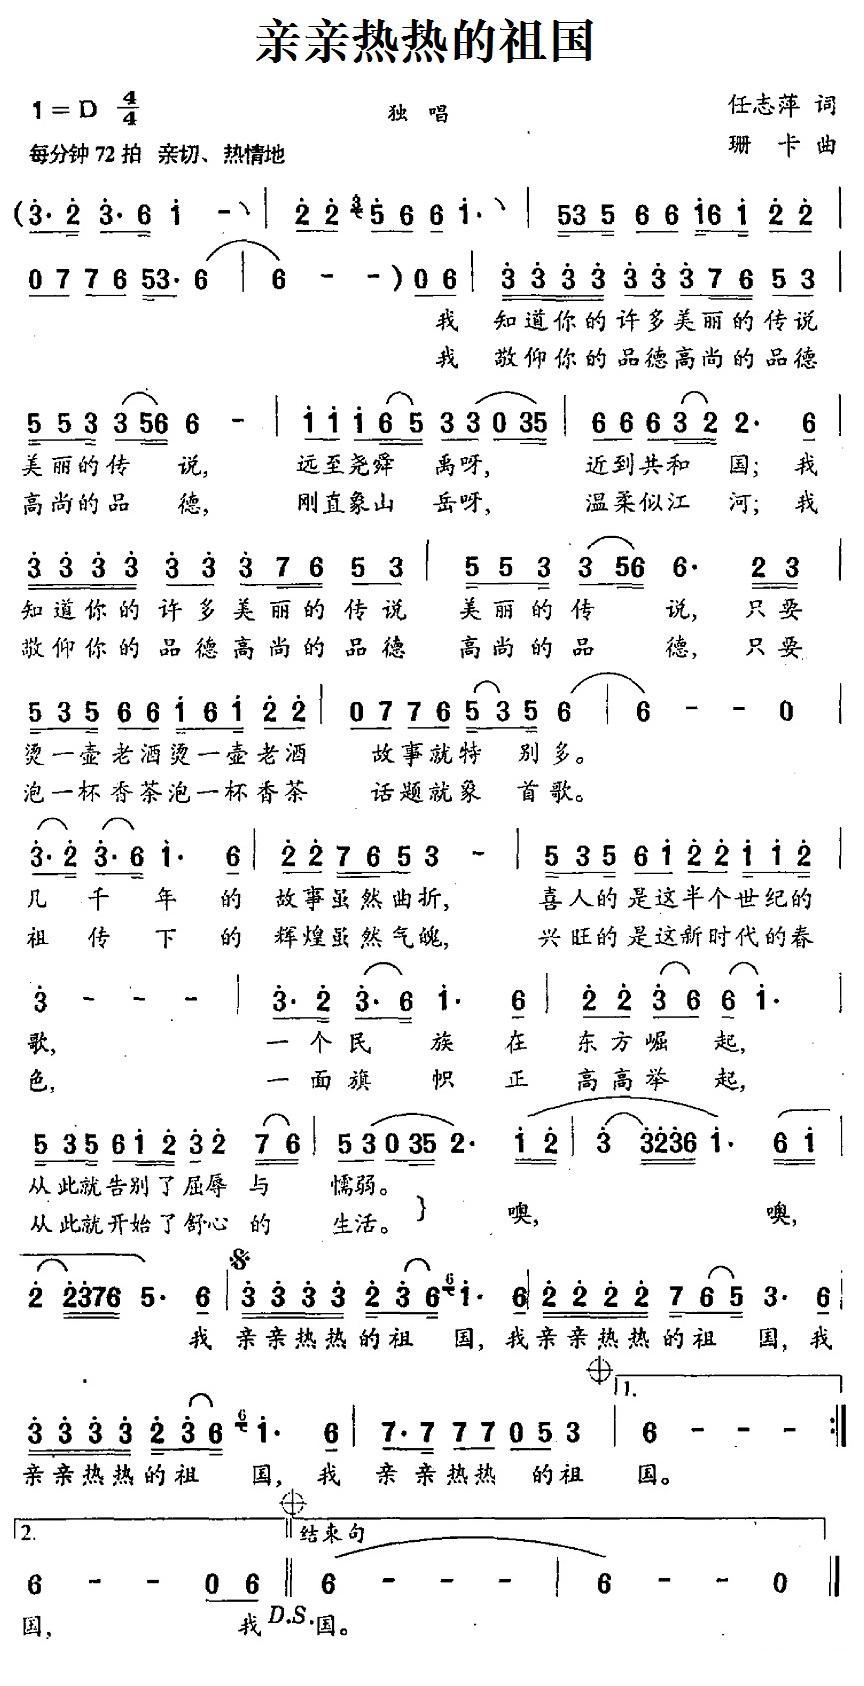 亲亲热热的祖国
1=D 4/4 独 唱 任志萍 词
每分钟72拍 亲切、热情地 珊 卡 曲
(3·2 3·6 1 - | 2 2 3 5 6 6 1· | 53 5 6 6 16 1 2 2 |
0 7 7 6 53· 6 | 6 - - ) 0 6 | 3 3 3 3 3 3 3 7 6 5 3 |
我 知道你的许多美丽的传说
我 敬仰你的品德高尚的品德
5 5 3 3 56 6 - | 1 1 1 6 5 3 3 0 35 | 6 6 6 3 2 2· 6 |
美丽的传 说, 远至尧舜 禹呀, 近到共和 国; 我
高尚的品 德, 刚直象山 岳呀, 温柔似江 河; 我
3 3 3 3 3 3 3 7 6 5 3 | 5 5 3 3 56 6· 2 3
知道你的 许多美丽的 传说 美丽的传 说, 只要
敬仰你的 品德高尚的 品德 高尚的品 德, 只要
5 3 5 6 6 1 6 1 2 2 | 0 7 7 6 5 3 5 6 | 6 - - 0 |
烫一壶老酒烫一壶老酒 故事就特 别多。
泡一杯香茶泡一杯香茶 话题就象 首歌。
3·2 3·6 1· 6 | 2 2 7 6 5 3 - | 5 3 5 6 1 2 2 1 1 2
几 千 年 的 故事虽然曲折, 喜人的是这半个世纪的
祖 传 下 的 辉煌虽然气魄, 兴旺的是这新时代的春
3 - - - | 3·2 3·6 1· 6 | 2 2 3 6 6 1· |
歌, 一个民 族 在 东方崛 起,
色, 一面旗 帜 正 高高举 起,
5 3 5 6 1 2 3 2 7 6 | 5 3 0 35 2· 1 2 | 3 3236 1· 6 1
从此就告别了屈辱 与 懦弱。
从此就开始了舒心 的 生活。 } 噢, 噢,
2 2376 5· 6 | 3 3 3 3 2 3 6 6 1· 6 | 2 2 2 2 7 6 5 3· 6 |
我 亲亲热热的祖 国, 我亲亲热热的祖 国, 我
1.
3 3 3 3 2 3 6 6 1· 6 | 7·7 7 7 0 5 3 | 6 - - - :‖
亲亲热热的祖 国, 我 亲 亲热热 的祖 国。
2. 结束句
6 - - 0 6 ‖ 6 - - - | 6 - - 0 ‖
国, 我 D.S. 国。